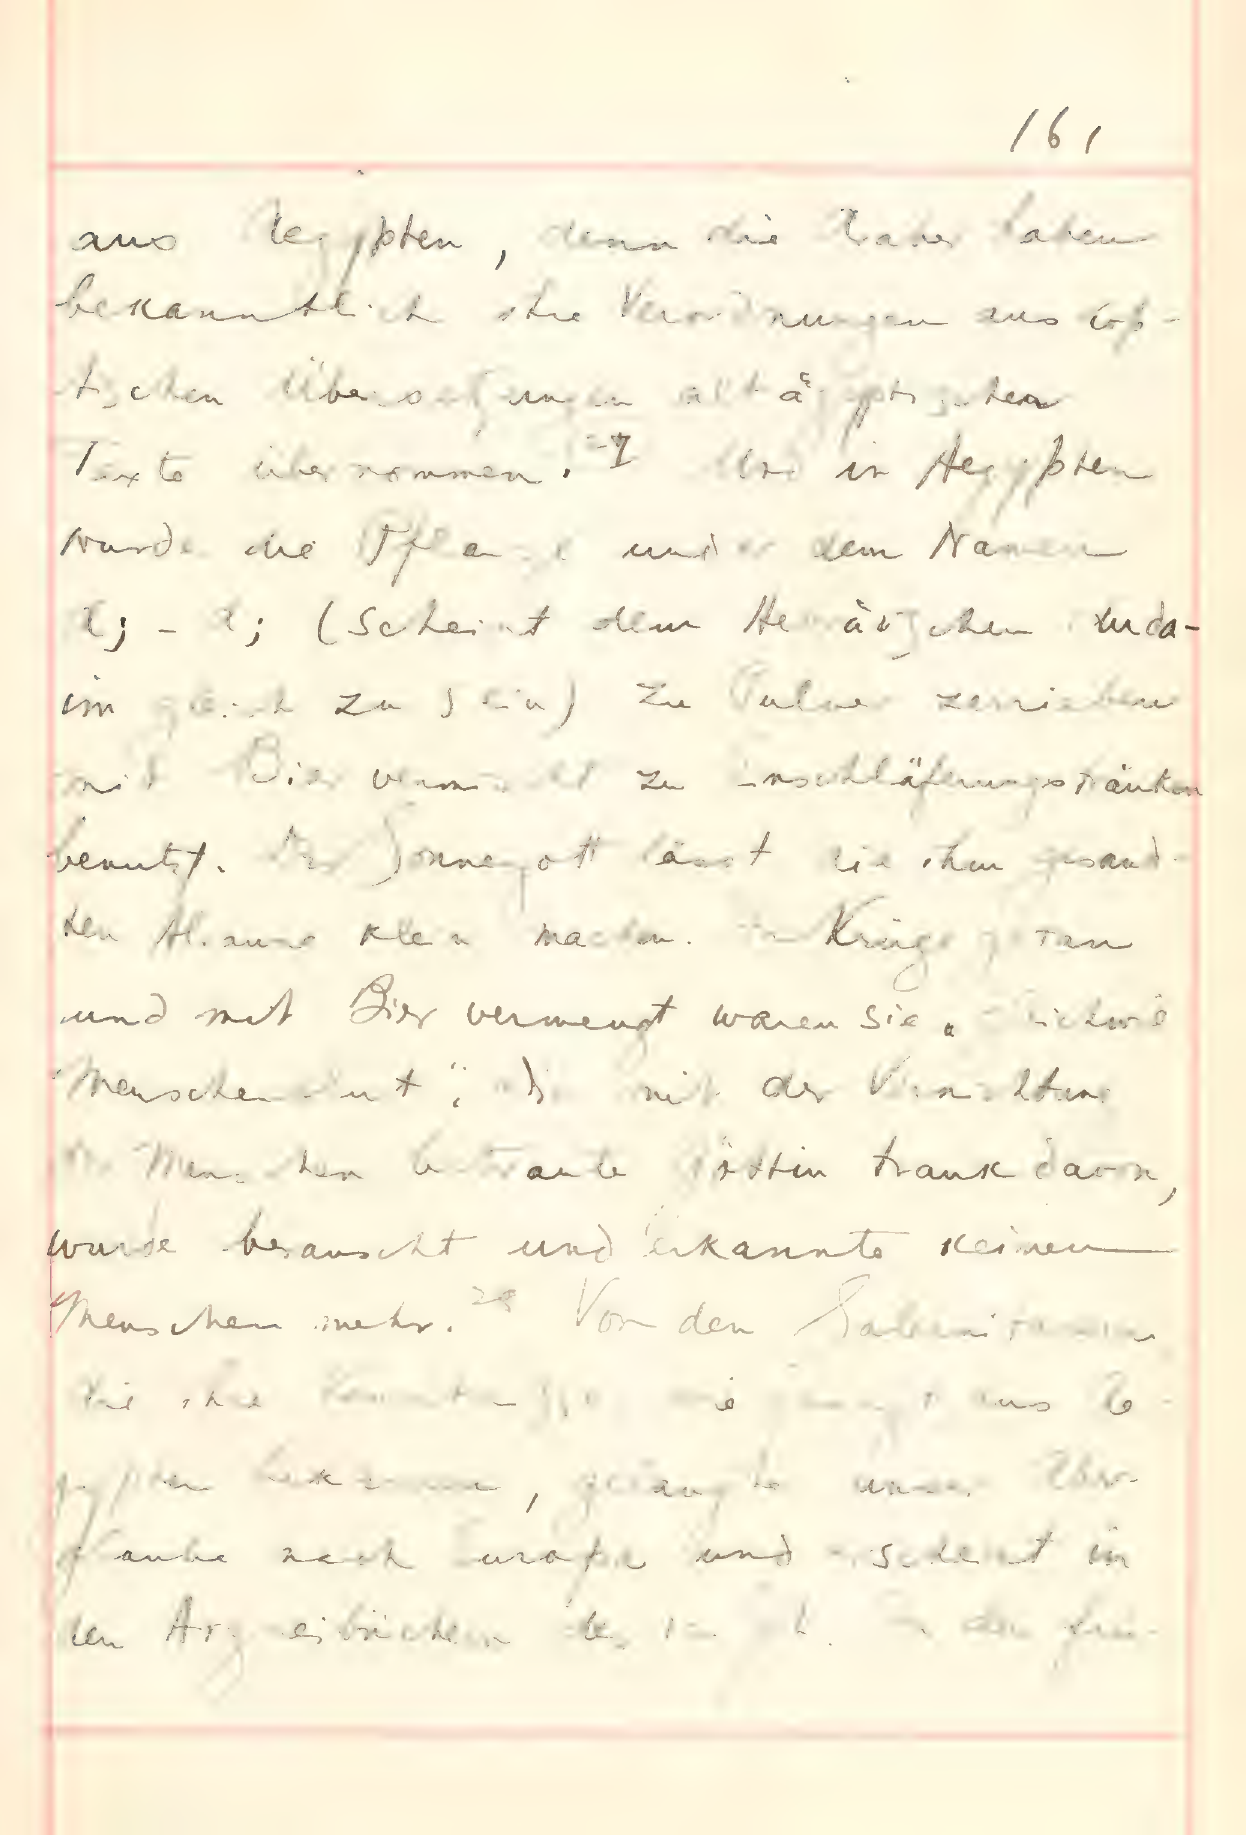 161
aus Aegypten, denn die Araber haben
bekanntlich ihre Verordnungen aus kop-
tischen Übersetzungen altägyptischer
Texte übernommen. 27 Und in Aegypten
wurde die Pflanze unter dem Namen
(scheint dem Hebräischen Duda-
im gleich zu sein) zu Pulver zerrieben
mit Bier vermischt zu Einschläferungstränken
benutzt. Der Sonnegott lässt die ihm gesand-
ten Alraune klein machen. In Krüge getan
und mit Bier vermengt waren sie „gleichwie
Menschenblut“; die mit der Vernichtung
der Menschen betraute Göttin trank davon,
wurde berauscht und erkannte keinen
Menschen mehr. 28 Von den
die ihre aus Ae-
gypten bekamen, gelangte unser Aber-
glaube nach Europa und erscheint in
den Arzneibüchern des In den